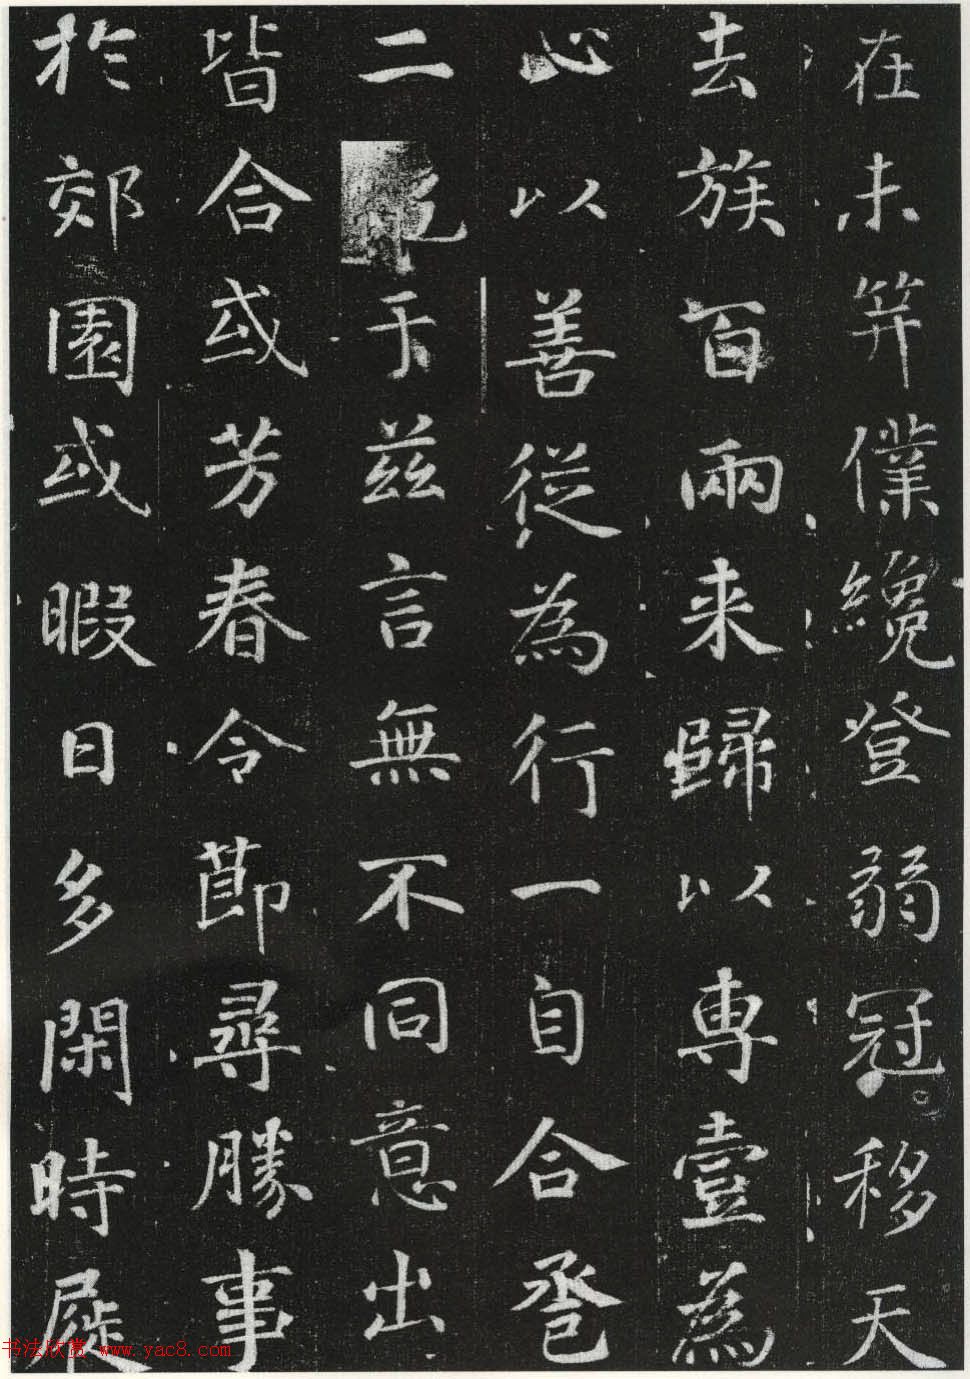 在未笄僕纔登弱冠移天
去族百兩来歸以專壹為
心以善從為行一自合卺
二于兹言無不同意出
皆合或芳春令節尋勝事
於郊園或暇日多閑時屣
书法欣赏 www.yac8.com